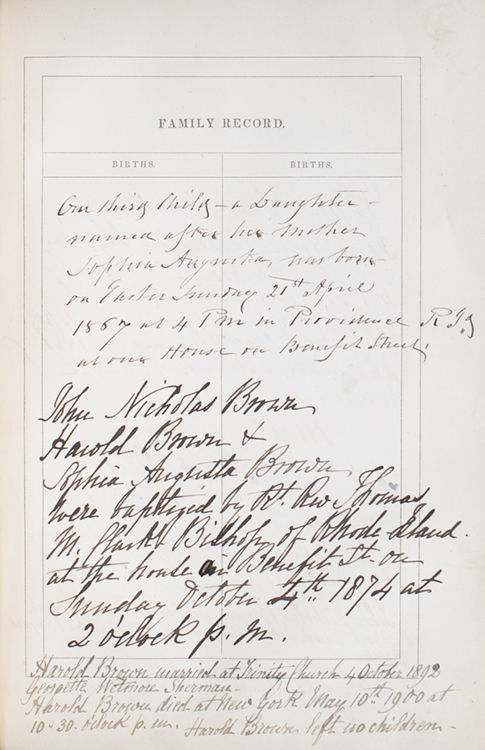 FAMILY RECORD.
BIRTHS. BIRTHS.
Our third Child – a Daughter –
named after her mother
Sophia Augusta, was born
on Easter Sunday 21st April
1867 at 4 Pm in Providence R I,
at our House on Benefit Street,
John Nicholas Brown
Harold Brown &
Sophia Augusta Brown
were baptized by Rt. Rev Thomas
M. Clark Bishop of Rhode Island.
at the house on Benefit St. on
Sunday October 4th. 1874 at
2 o'clock p. m.
Harold Brown married at Trinity Church 4 October 1892
Georgette Wetmore Sherman –
Harold Brown died at New York May 10th 1900 at
10-30 o'clock p. m. Harold Brown left no children –